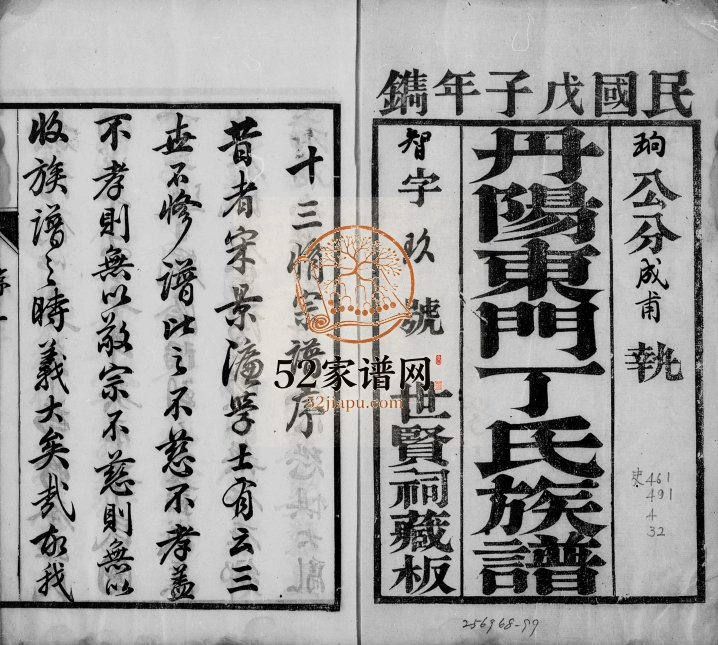 民國戊子年鐫
珣公分成甫執
丹陽東門丁氏族譜
智字玖號 世賢祠藏板
十三脩宗譜序
昔者宋景濂學士有云三
世不修譜比之不慈不孝蓋
不孝則無以敬宗不慈則無以
收族譜之時義大矣哉故我
序一
52家谱网
52jiapu.com
史 461
491
4
32
256968-99